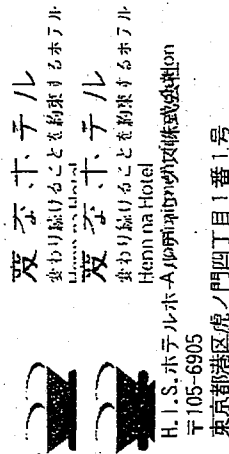 変なホテル
変わり続けることを約束するホテル
Henn na Hotel
変なホテル
変わり続けることを約束するホテル
Henn na Hotel
H.I.S.ホテルホールディングス株式会社
〒105-6905
東京都港区虎ノ門四丁目1番1号